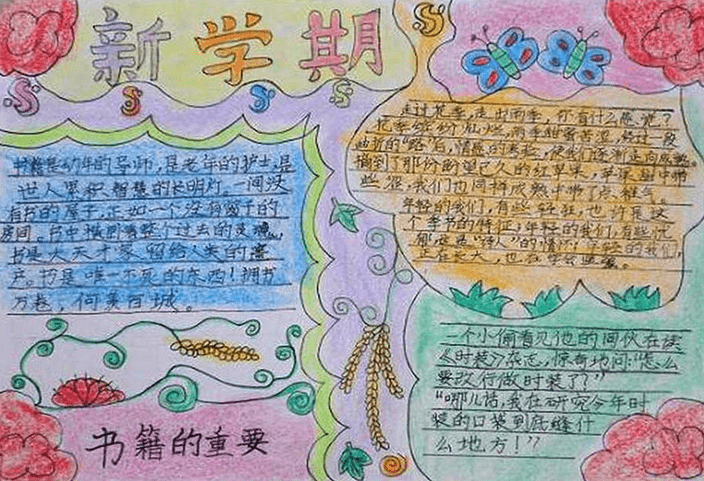 新学期
书籍是幼年的导师,是老年的护士,是
世人累积智慧的长明灯,一间没
有书的屋子,正如一个没有窗子的
房间。书中横卧着整个过去的灵魂,
书是大天才家留给人类的遗
产。书是唯一不死的东西!拥书
万卷,何异百城。
书籍的重要
走过花季,走出雨季,你有什么感觉?
花季缤纷灿烂,雨季甜蜜苦涩,经过一段
曲折的“路”后,情感的
摘到了那份盼望已久的红苹果,苹果
些涩,我们也同样成熟中带了点稚气。
年轻的我们,有些轻狂,也许是这
个季节的特征,年轻的我们,有些忧
“诗人”的情怀;年轻的我们,
正在长大,也在学会
一个小偷看见他的同伙在读
《时装》杂志,惊奇地问:“怎么
要改行做时装了?”
“哪儿话,我在研究今年时
装的口袋到底缝什
么地方!”